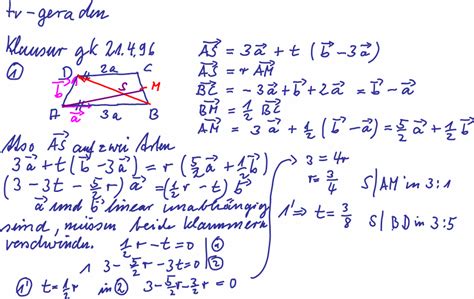 tv-geraden
Klausur gk 21.4.96
①
D 2a C
b S M
A a 3a B
A⃗S⃗ = 3a⃗ + t (b⃗ - 3a⃗)
A⃗S⃗ = r A⃗M⃗
B⃗C⃗ = -3a⃗ + b⃗ + 2a⃗ = b⃗ - a⃗
B⃗M⃗ = 1/2 B⃗C⃗
A⃗M⃗ = 3a⃗ + 1/2 (b⃗ - a⃗) = 5/2 a⃗ + 1/2 b⃗
Also A⃗S⃗ auf zwei Arten
3a⃗ + t (b⃗ - 3a⃗) = r (5/2 a⃗ + 1/2 b⃗)
(3 - 3t - 5/2 r) a⃗ = (1/2 r - t) b⃗
a⃗ und b⃗ linear unabhängig
sind, müssen beide Klammern
verschwinden. 1/2 r - t = 0 ①
1 3 - 5/2 r - 3t = 0 ②
①' t = 1/2 r in ② 3 - 5/2 r - 3/2 r = 0
3 = 4r
r = 3/4 S|AM in 3:1
1' ⇒ t = 3/8 S|BD in 3:5